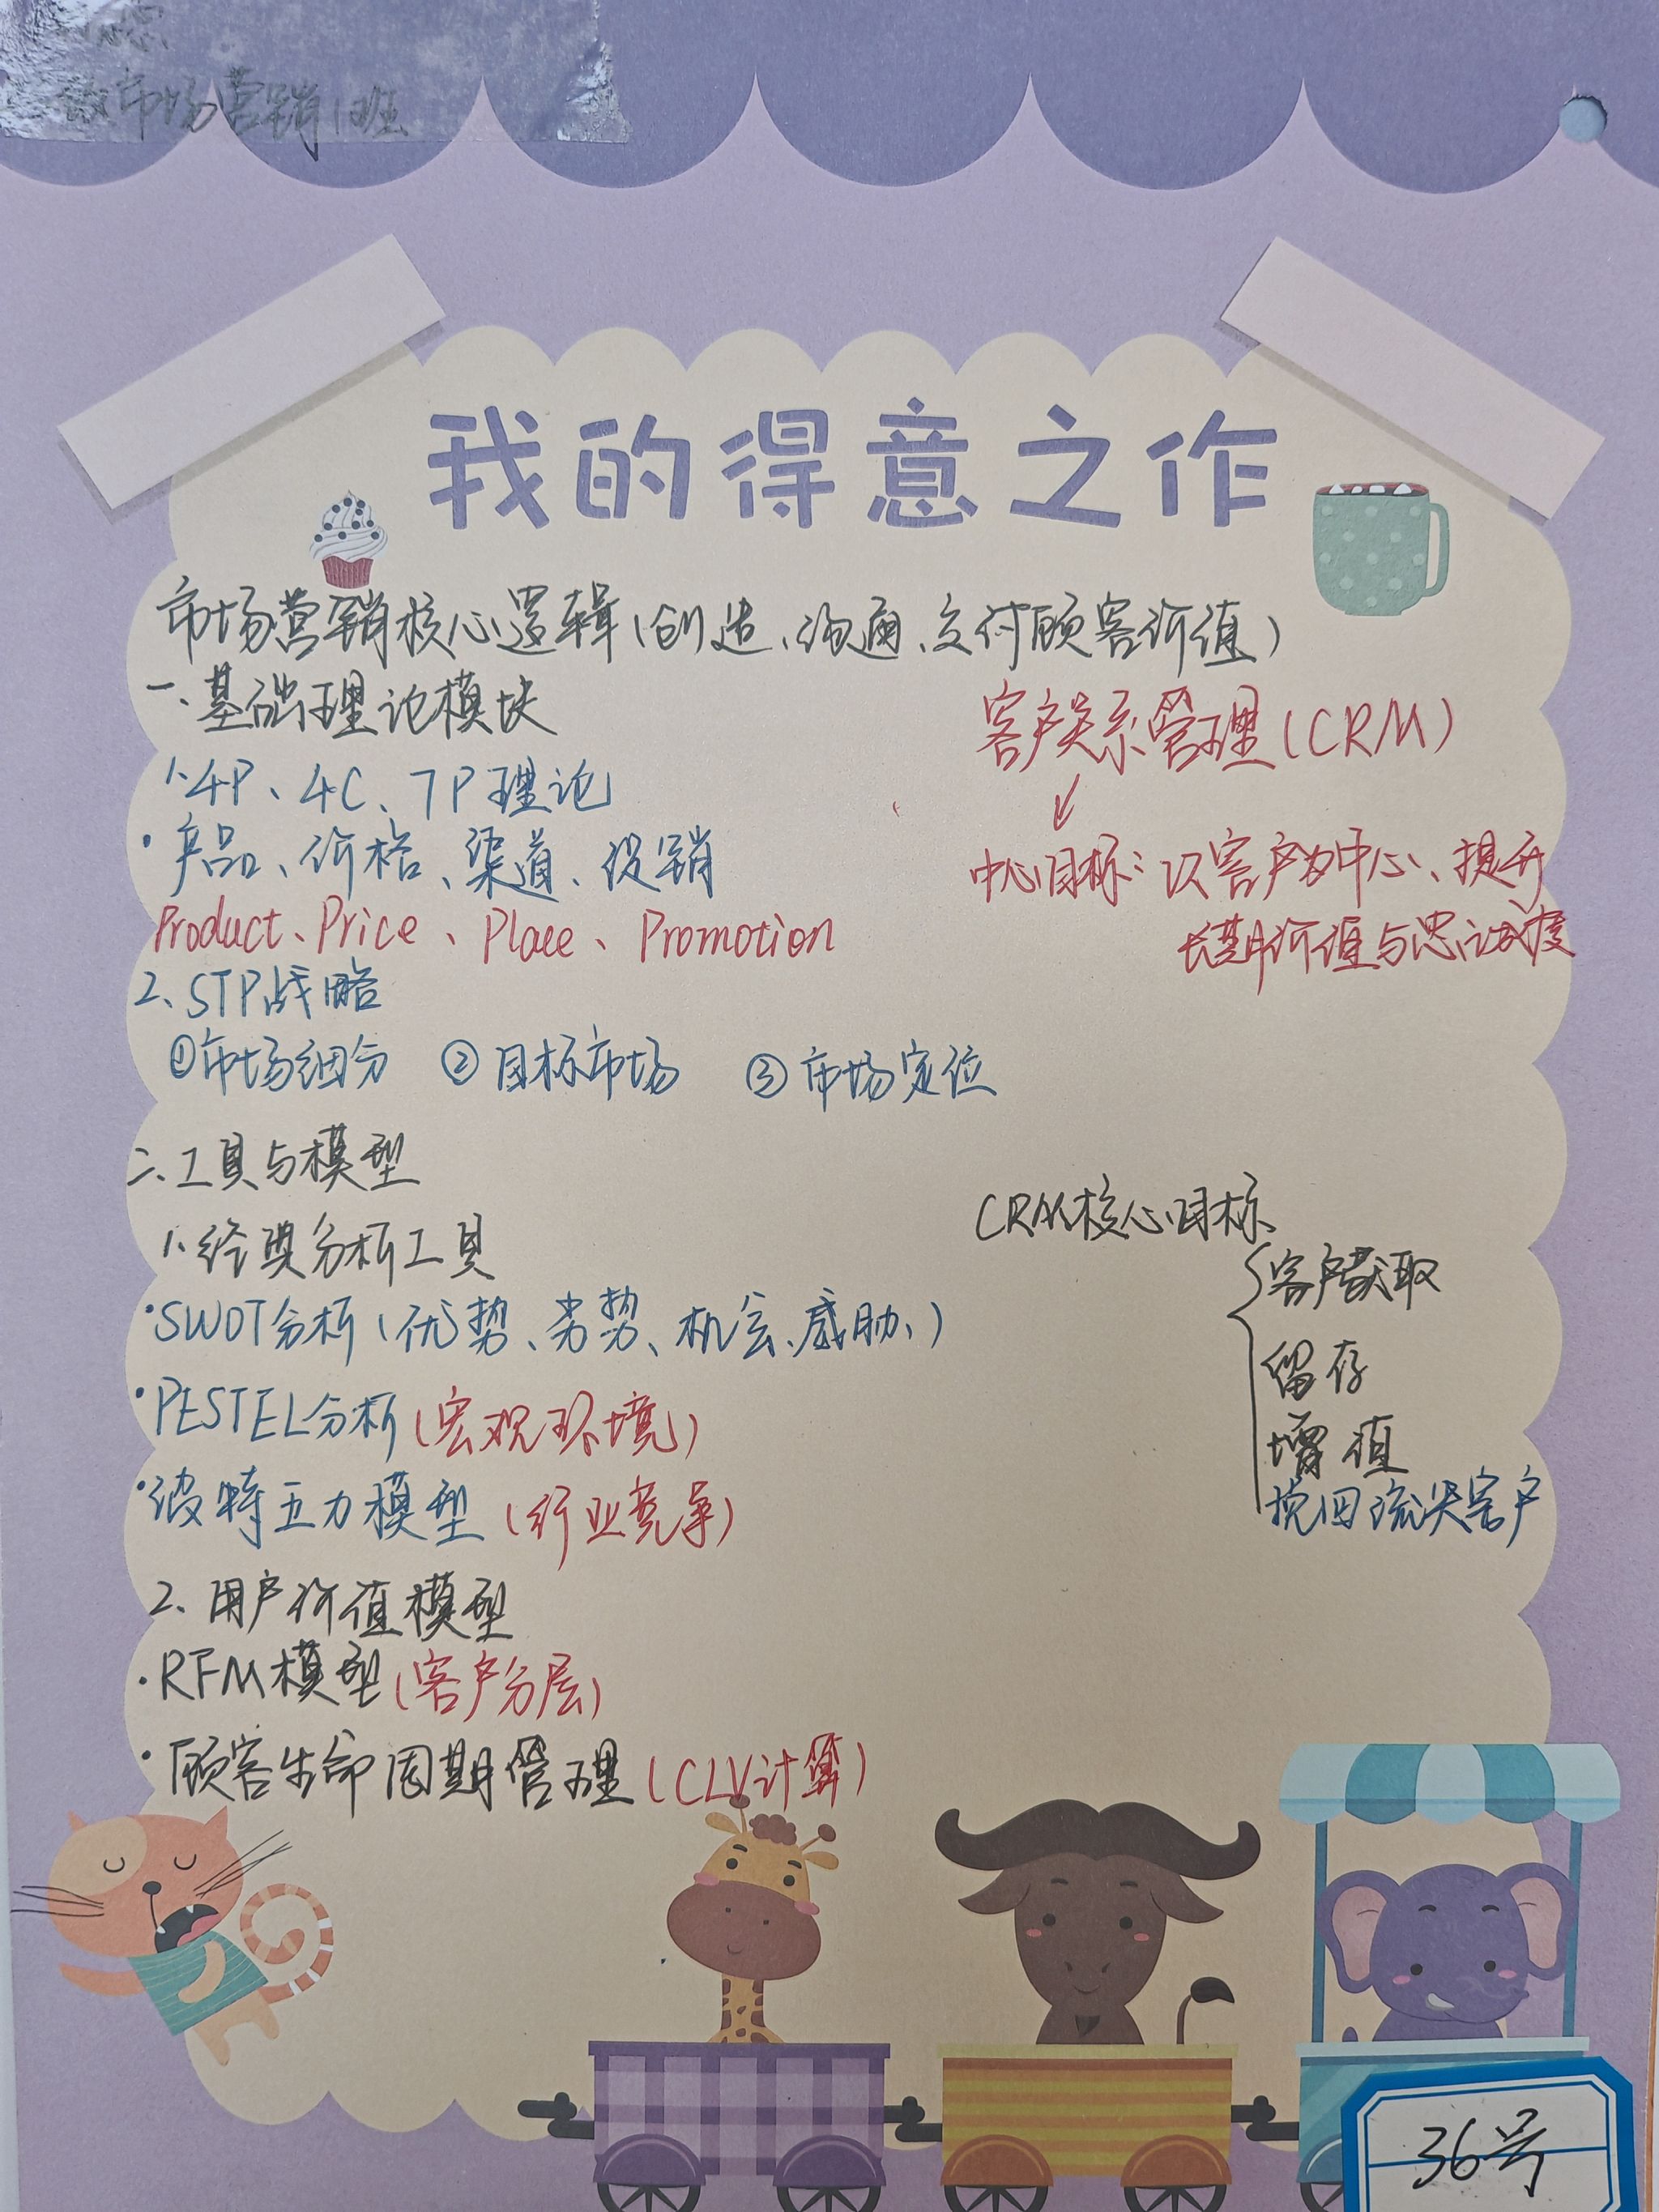 市场营销1班
我的得意之作
市场营销核心逻辑(创造、沟通、交付顾客价值)
一、基础理论模块
1、4P、4C、7P理论
·产品、价格、渠道、促销
Product、Price、Place、Promotion
2、STP战略
①市场细分 ②目标市场 ③市场定位
客户关系管理(CRM)
↙
中心目标:以客户为中心、提升
长期价值与忠诚度
二、工具与模型
1、经典分析工具
·SWOT分析(优势、劣势、机会、威胁、)
·PESTEL分析(宏观环境)
·波特五力模型(行业竞争)
2、用户价值模型
·RFM模型(客户分层)
·顾客生命周期管理(CLV计算)
CRM核心目标
客户获取
留存
增值
挽回流失客户
36号